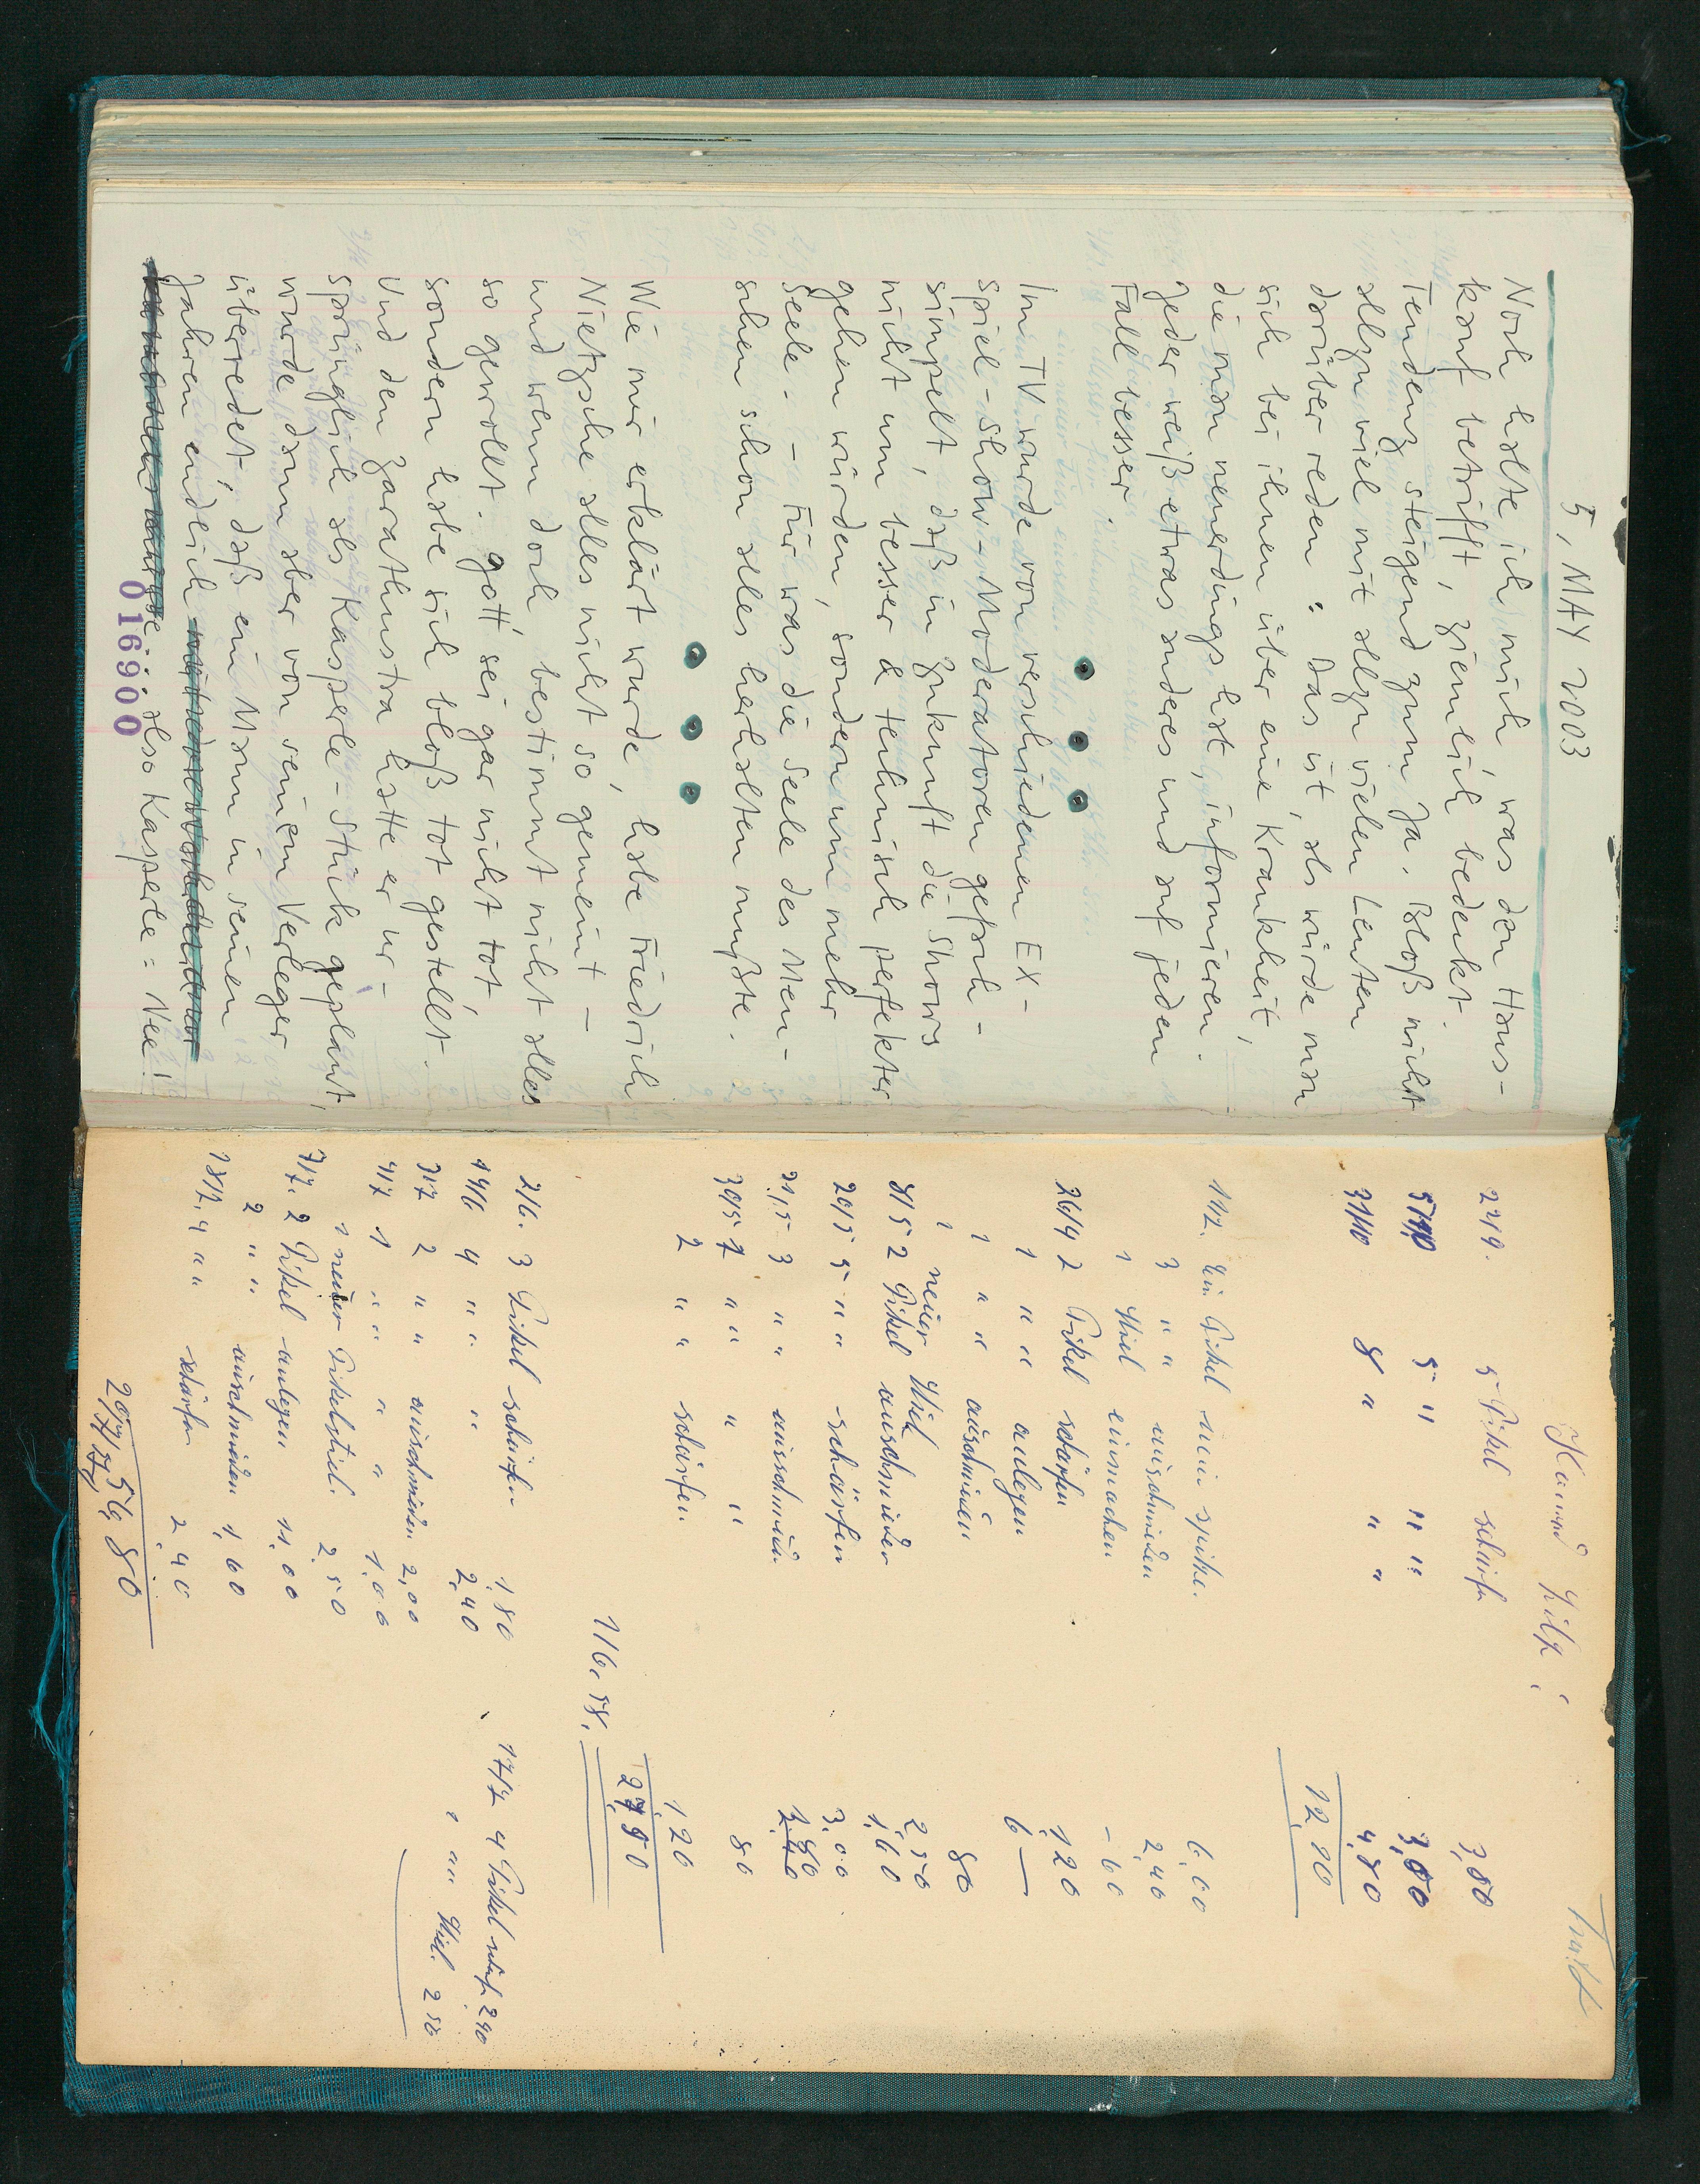 5, MAY 2003
Noch halte ich mich, was den Haus-
kauf betrifft, ziemlich bedenkt.
Tendenz steigend zum Ja. Bloß nicht
allzu viel mit allzu vielen Leuten
darüber reden: Das ist, als würde man
sich bei ihnen über eine Krankheit,
die man neuerdings hat, informieren.
Jeder weiß etwas anderes und auf jeden
Fall besser.
Im TV wurde von verschiedenen EX-
spiel-Show-Moderatoren gefach-
simpelt, daß in Zukunft die Shows
nicht um besser & technisch perfekter
gehen würden, sondern um mehr
Seele. - Für was die Seele des Men-
schen schon alles herhalten mußte.
Wie mir erklärt wurde, habe Friedrich
Nietzsche alles nicht so gemeint -
und wenn doch, bestimmt nicht alles
so gewollt. Gott sei gar nicht tot
sondern habe sich bloß tot gestellt.
Und den Zarathustra hatte er ur-
sprünglich als Kasperle-Stück geplant,
wurde dann aber von seinem Verleger
überredet, daß ein Mann in seinen
Jahren endlich
also Kasperle = Nee!
016900
Hamp Kilp:
22/9. 5 Pikel schärfen 3,80
5/10 5 " " " 3,00
31/10 8 " " " 4,80
12,80
11/2. Ein Pikel neu spike. 6,00
3 " " ausschmieden 2,40
1 Stiel einmachen -60
26/4 2 Pikel schärfen 1,20
1 " " anlegen 6 —
1 " " ausschmieden 80
1 neuer Stiel 2,50
8/5 2 Pikel ausschmieden 1,60
20/5 5 " " schärfen 3,00
21/5 3 " " ausschmieden
30/5 1 " " " " 80
2 " " schärfen 1,20
27,50
1/6. 58.
2/6. 3 Pikel schärfen 1,80
14/6 4 " " " 2,40
3/7 2 " " ausschmieden 2,00
4/7 1 " " " " 1,00
1 neuer Pikelstiel 2,50
7/7. 2 Pikel anlegen 11,00
2 " " ausschmieden 1,60
18/7. 4 " " schärfen 2,40
17/7 4 Pikel schärf. 2,40
" " Stiel. 2 50